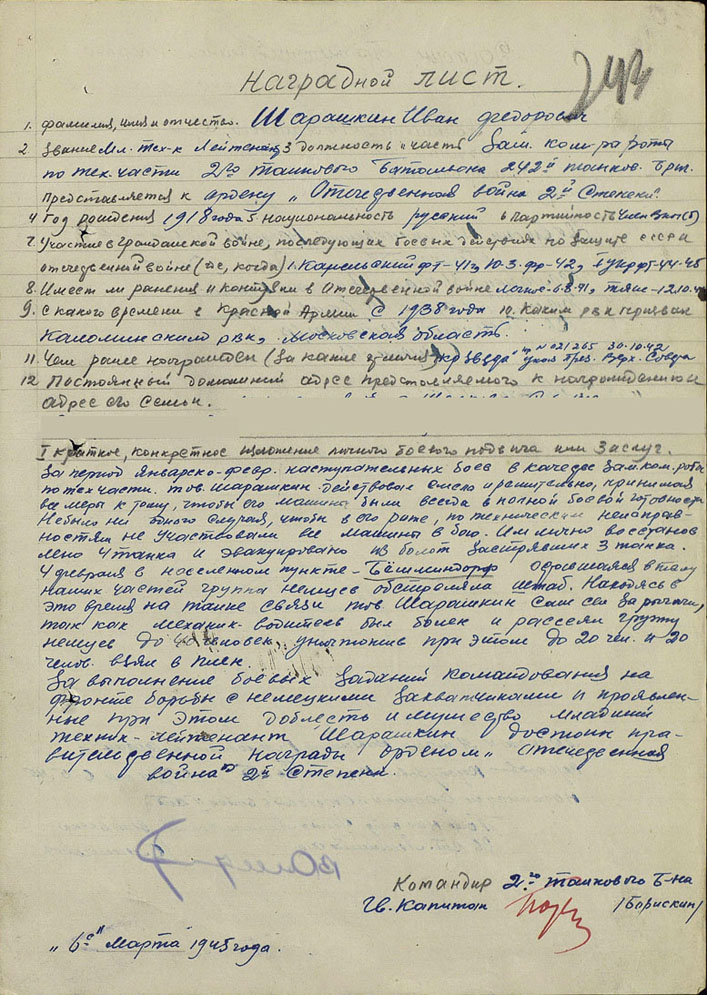 Наградной лист.
243
1. Фамилия, имя и отчество. Шарашкин Иван Федорович
2 Звание Мл. тех-к Лейтенант 3 должность и часть Зам. ком-ра рота
по тех. части 2го танкового батальона 242й танков. Бриг.
Представляется к ордену „Отечедвенная война 2й Степени".
4 Год рождения 1918 года 5. Национальность русский 6 партийность член ВКП(б)
7. Участие в гражданской войне, последующих боевых действиях по защите СССР и
отечедвенной войне (где, когда) 1. Карельский фр-41г, Ю-З. фр-42г, 1 Укр фр-44-45
8. Имеет ли ранения и контузии в Отечедвенной войне 6-8-41г, 12.10.
9. С какого времени в Красной Армии С 1938 года 10. Каким рвк призван
Каломинским рвк, Московская область.
11. Чем ранее награжден (за какие отличия) „кр звезда" № 021265 30.10.42 указ През. Верх. Совета
12 Постоянный домашний адрес предстовляемого к награждению и
адрес его семьи.
I Краткое, конкретное изложение личного боевого подвига или Заслуг.
За период Январско-февр. наступательных боев в качедве Зам. ком. роты
по тех части. тов. Шарашкин действовал смело и решительно, принимая
все меры к тому, чтобы его машины были всегда в полной боевой готовности
Небыло ни одного случая, чтобы в его роте, по техническим неисправ-
ностям не участвовали все машины в бою. Им лично восстанов
лено 4 танка и эвакуировано из болот застрявших 3 танка.
4 февраля в населенном пункте - Бёшминдорф оставшаяся в тылу
наших частей группа немцев обстреляла штаб. Находясь в
это время на танке связи тов Шарашкин Сам сел за рычаги,
так как механик-водитель был болен и рассеял группу
немцев до человек уничтожив при этом до 20 чел. и 20
челов. взял в плен.
За выполнение боевых Заданий командования на
фронте борьбы с немецкими захватчиками и проявлен-
ные при этом доблесть и мужество младший
техник-лейтенант Шарашкин достоин пра-
вителедвенной награды орденом „Отечедвенная
война" 2й Степени.
Командир 2го танкового Б-на
Гв. Капитан /Борискин/
„6го" Марта 1945 года.